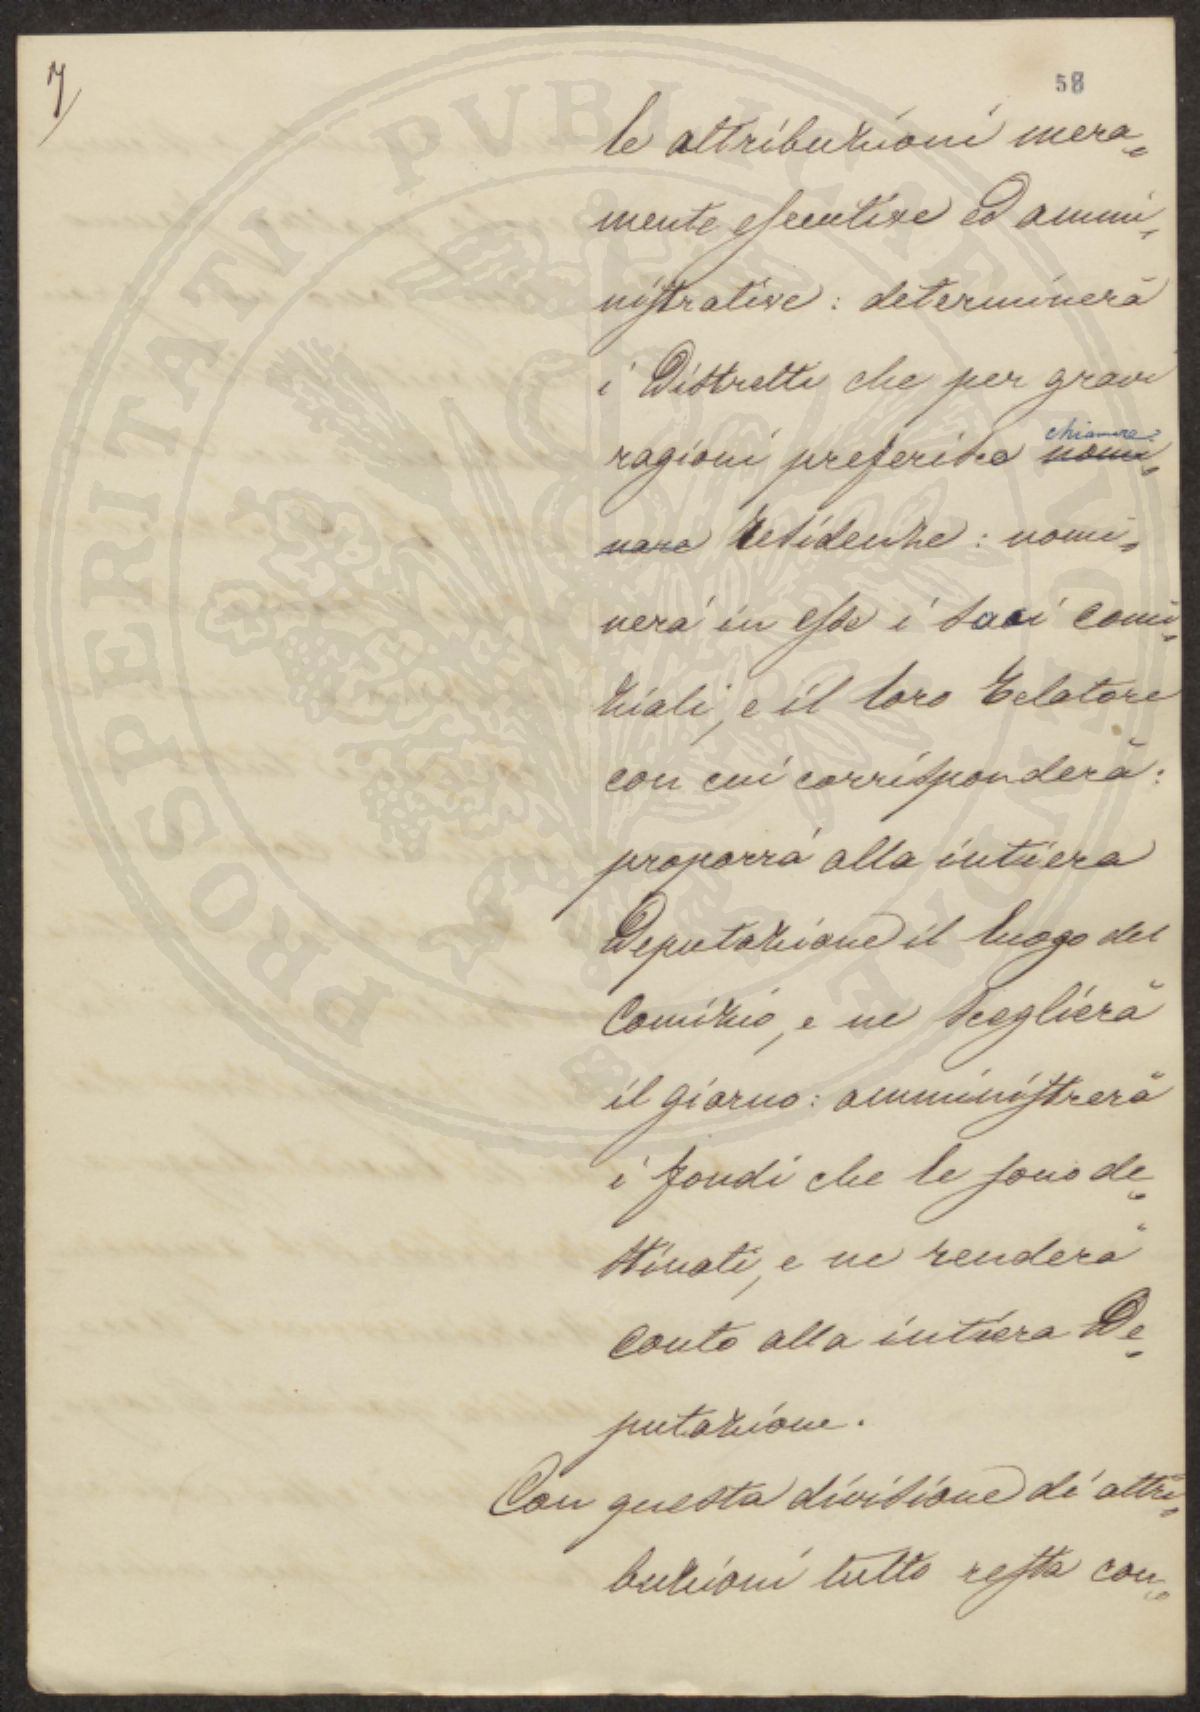 7
58
le attribuzioni mera=
mente esecutive ed ammi=
nistrative: determinerà
i Distretti che per gravi
ragioni preferisce nomi=
chiamare
nare Residenze: nomi=
nerà in esse i suoi Comi=
ziali, e il loro Relatore
con cui corrisponderà:
proporrà alla intiera
Deputazione il luogo del
Comizio, e ne sceglierà
il giorno: amministrerà
i fondi che le sono de=
stinati, e ne renderà
conto alla intiera De=
putazione.
Con questa divisione di attri=
buzioni tutto resta con=
PROSPERITATI PVBLICAE AVGENDAE